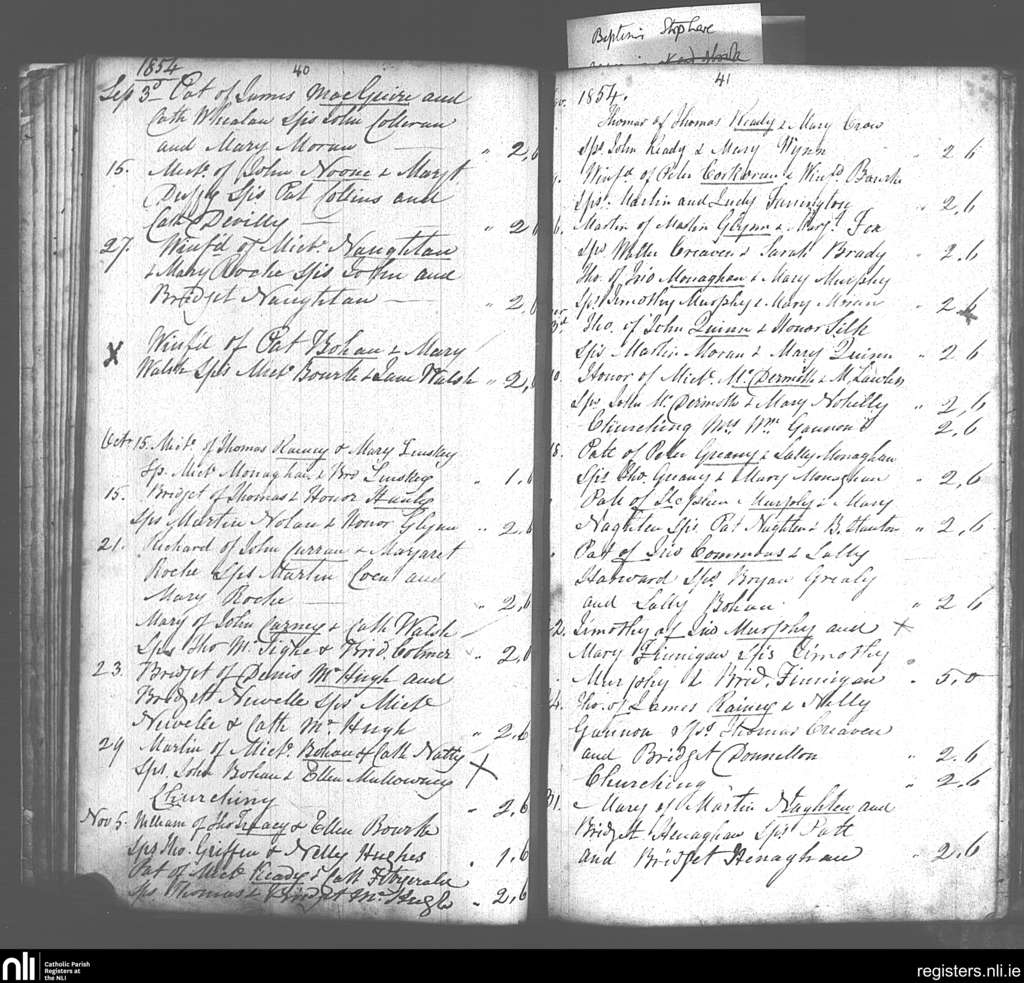 Baptisms
1854 40
Sep 3d Pat of James MacGuire and
Cath Whealan Sps John Colleran
and Mary Moran " 2,6
15. Mich. of John Noone & Mary
Duffy Sps Pat Collins and
Cath Devilly " 2 6
27. Winfd of Mich. Naughtan
& Mary Roche Sps John and
Bridget Naughtan " 2,6
X Winfd of Pat Bohan & Mary
Walsh Sps Mich. Bourke & Jane Walsh " 2,6
Oct. 15. Mich. of Thomas Rainey & Mary Linskey
Sp. Mich. Monaghan & Brd Linskey " 1.6
15. Bridget of Thomas & Honor Hanly
Sps Martin Nolan & Honor Glynn " 2.6
21. Richard of John Curran & Margaret
Roche Sps Martin and
Mary Roche " 2,6
Mary of John Carney & Cath Walsh
Sps Tho Mc Tighe & Brid. Colmer " 2.6
23. Bridget of Denis Mc Hugh and
Bridgett Newelle Sps Mich.
Newelle & Cath Mc Hugh " 2.6
29 Martin of Mich. Bohan & Cath Natty X
Sps. John Bohan & Ellen Mullowney
Churching " 2,6
Nov 5. William of Tho Treacy & Ellen Bourke
Sps Tho. Griffin & Nelly Hughes " 1.6
Pat of Mich Keady & Cath Fitzgerald
Sps Thomas & Bridget Mc Hugh " 2,6
41
1854.
Thomas of Thomas Keady & Mary Crow
Sps John Keady & Mary Wynn " 2 6
Winfd of Peter Corkoran & Winfd Bourke
Sps. Martin and Judy Farrington " 2,6
6. Martin of Martin Glynn & Marg. Fox
Sps Walter Creaven & Sarah Brady " 2.6
Tho. of Jno Monaghan & Mary Murphy
Sps Timothy Murphy & Mary Moran " 2 6
3d Tho. of John Quinn & Honor Silk
Sps Martin Moran & Mary Quinn " 2 6
10. Honor of Mich. Mc Dermott & M. Lawless
Sps John Mc Dermott & Mary Nohilly " 2,6
Churching Mrs Wm Gannon 2.6
18. Patt of Peter Greany & Sally Monaghan
Sps Tho. Greany & Mary Monaghan " 2,6
Patt of Murphy & Mary
Naghten Sps. Pat Naghten & B. Stanton " 2,6
Pat of Jno Commons & Sally
Harward Sps Bryan Grealy
and Sally Bohan " 2 6
2. Timothy of Jno Murphy and X
Mary Finnigan Sps Timothy
Murphy & Brid. Finnigan " 5,0
4. Tho. of James Rainey & Nelly
Gannon Sps Thomas Creaven
and Bridget Donnellon " 2.6
Churching " 2.6
31. Mary of Martin Naghten and
Bridgett Henaghan Sps Patt
and Bridget Henaghan " 2.6
nli Catholic Parish
Registers at
the NLI
registers.nli.ie